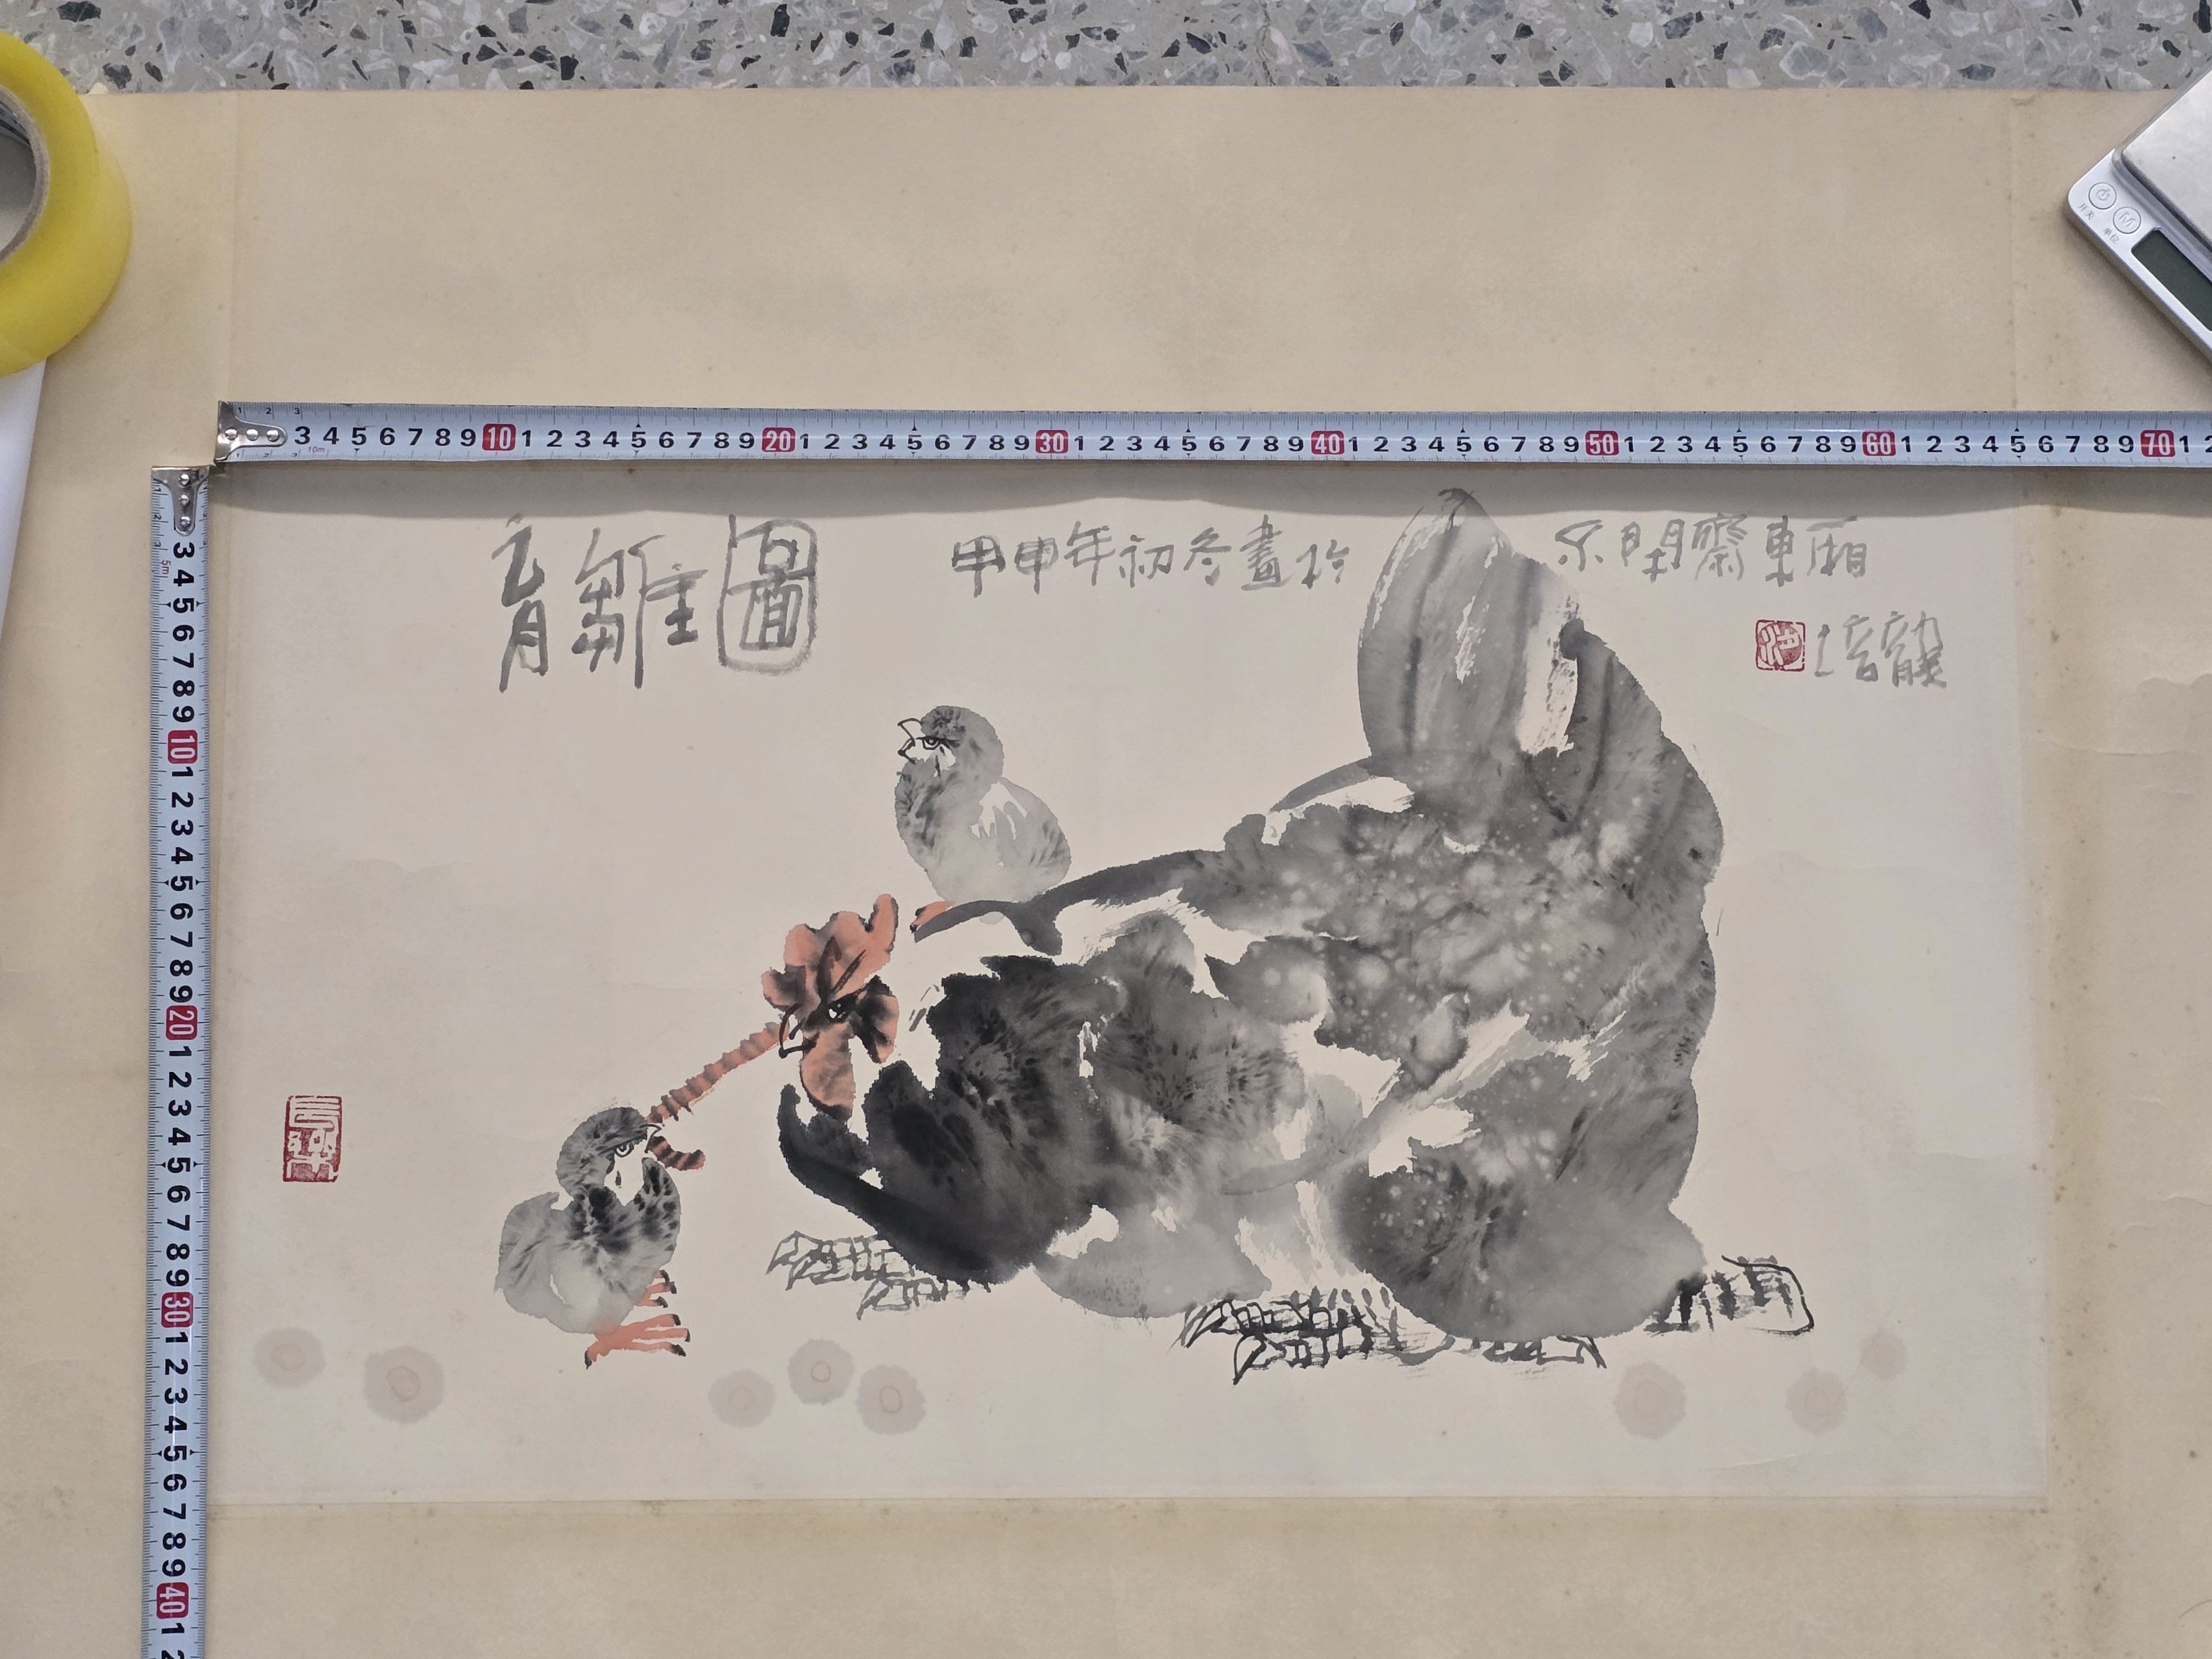 育雛圖 甲申年初冬畫於 不閑齋東廂
培龍
3 4 5 6 7 8 9 10 1 2 3 4 5 6 7 8 9 20 1 2 3 4 5 6 7 8 9 30 1 2 3 4 5 6 7 8 9 40 1 2 3 4 5 6 7 8 9 50 1 2 3 4 5 6 7 8 9 60 1 2 3 4 5 6 7 8 9 70 1 2
3 4 5 6 7 8 9 10 1 2 3 4 5 6 7 8 9 20 1 2 3 4 5 6 7 8 9 30 1 2 3 4 5 6 7 8 9 40 1 2
10m
5m
开关
单位
M